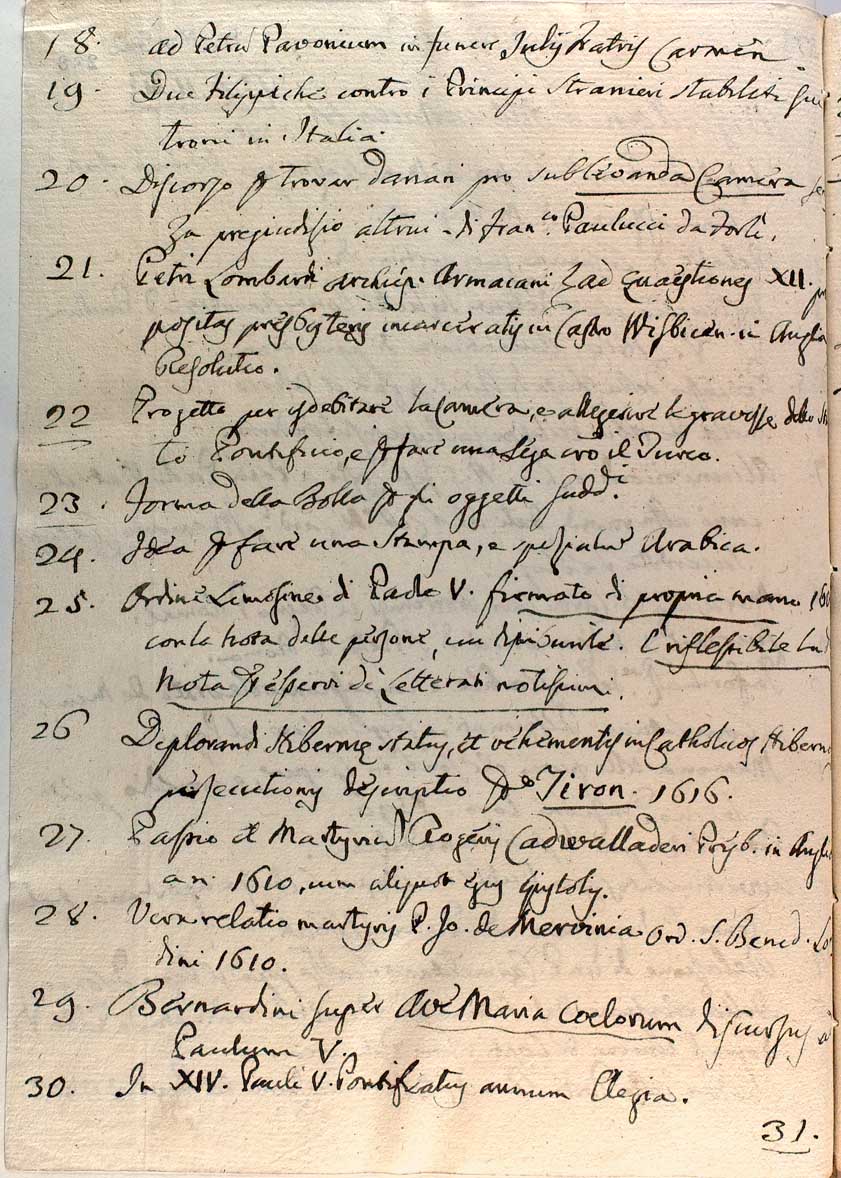 18. ad Petrū Pavonium in funere Julij Fratris Carmen
19. Due Filippiche contro i Principi stranieri stabiliti
troni in Italia.
20. Discorso ꝑ trovar danari pro sublevanda Camera
za pregiudizio altrui - di Fran.co Paulucci da Forlì.
21. Petri Lombardi Archiep. Armacani ad quæstiones XII.
positas presbyteris incarceratis in Castro Wisbicen. in Anglia
Resolutio.
22 Progetto per isdebitare la Camera, e allegerire le gravezze dello
to Pontificio, e ꝑ fare una Lega cōō il Turco.
23. Forma della Bolla ꝑ gli oggetti sudd.i
24. Idea ꝑ fare una Stampa, e spezialmē Arabica.
25. Ordine Limosine di Paolo V. firmato di propria mano
con la nota delle persone, cui dispensate. È riflessibile
Nota ꝑ esservi de Letterati notissimi.
26 Deplorandi Hibernię status, et vehementis in Catholicos
persecutionis descriptio Tiron. 1616.
27. Passio et Martyriū Rogerij Cadwalladeri Presb. in
an. 1610, cum aliquot ejus Epistolis.
28. Vera relatio martyrij P. Jo. de Mervinia Ord. S. Bened.
dini 1610.
29. Bernardini super Ave Maria coelorum discursus
Paulum V.
30. In XIV. Pauli V. Pontificatus annum Elegia.
31.